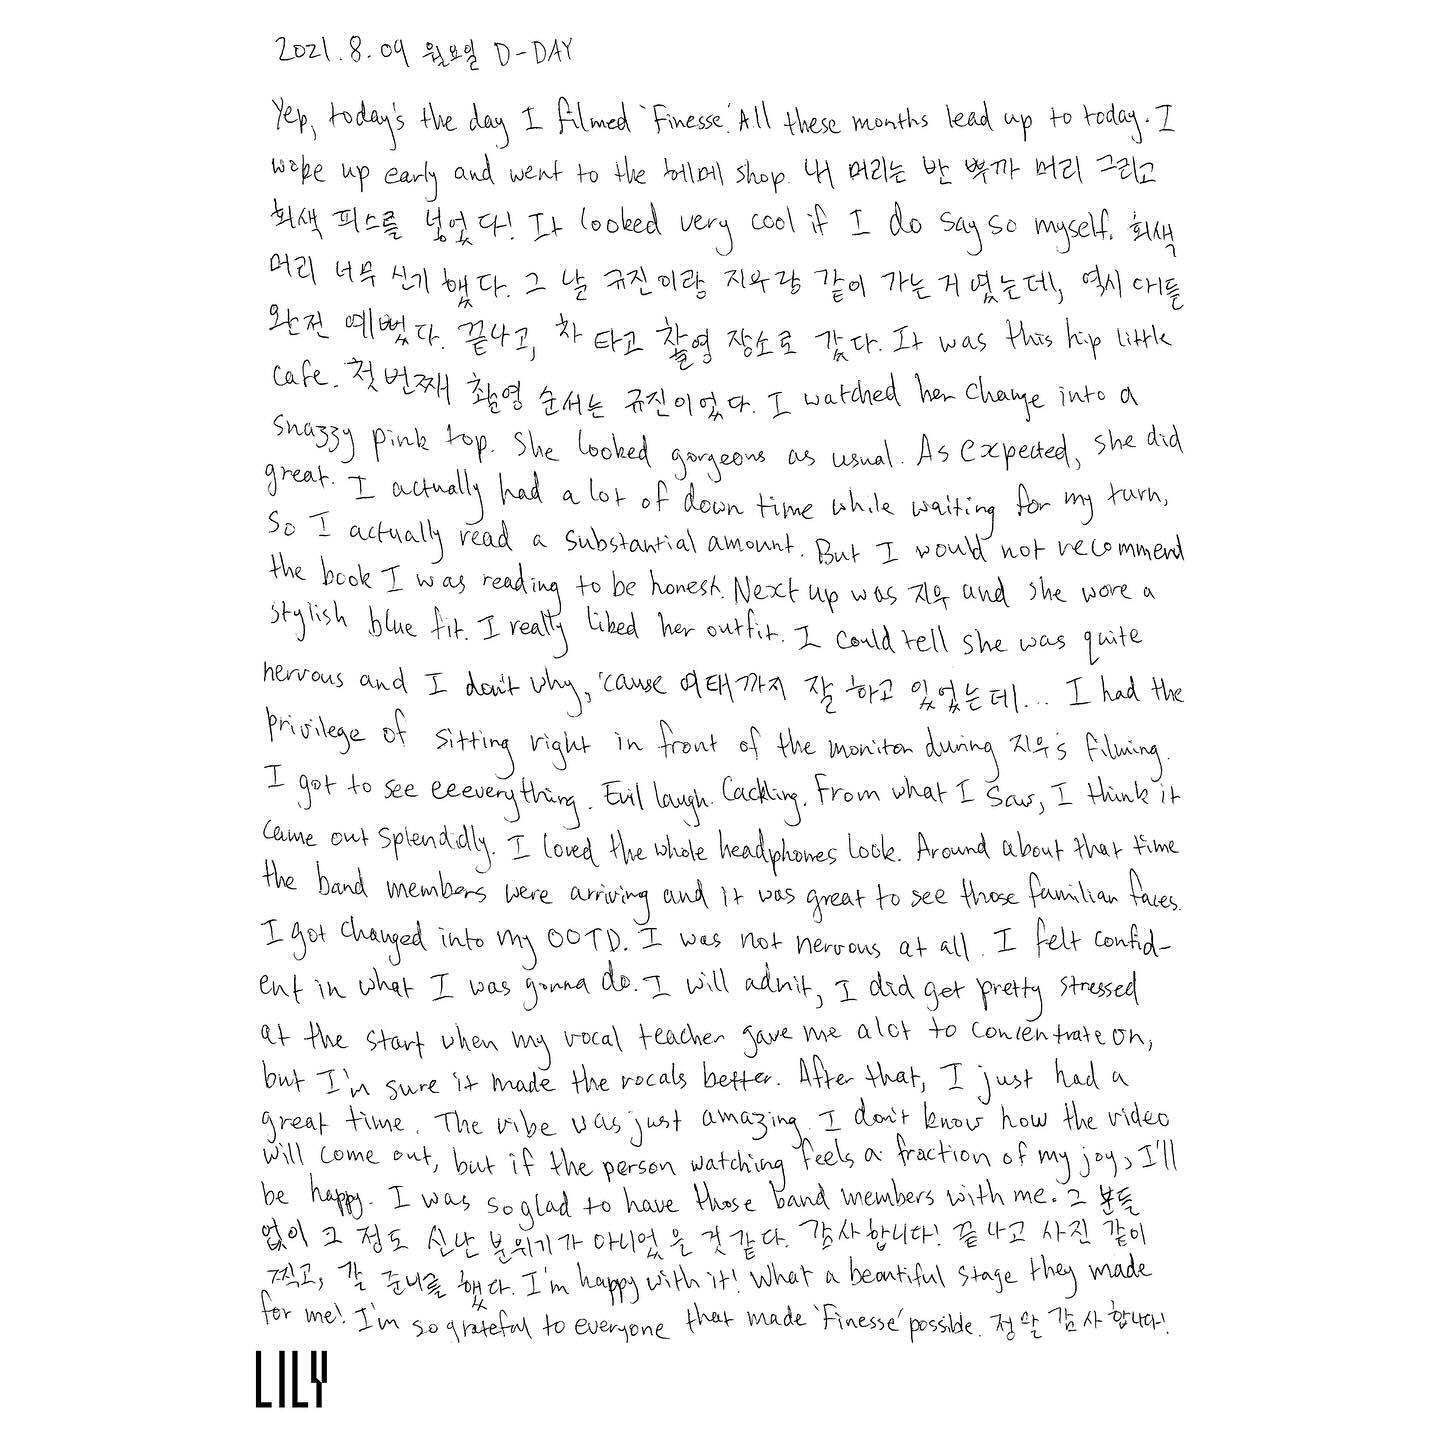 2021.8.09 월요일 D-DAY
Yep, today's the day I filmed 'Finesse'. All these months lead up to today. I
woke up early and went to the 헤메 shop. 내 머리는 반 뿌까 머리 그리고
회색 피스를 넣었다! It looked very cool if I do say so myself. 회색
머리 너무 신기했다. 그 날 규진이랑 지우랑 같이 가는 거였는데, 역시 얘들
완전 예뻤다. 끝나고, 차 타고 촬영 장소로 갔다. It was this hip little
cafe. 첫번째 촬영 순서는 규진이었다. I watched her change into a
snazzy pink top. She looked gorgeous as usual. As expected, she did
great. I actually had a lot of down time while waiting for my turn,
so I actually read a substantial amount. But I would not recommend
the book I was reading to be honest. Next up was 지우 and she wore a
stylish blue fit. I really liked her outfit. I could tell she was quite
nervous and I don't why, 'cause 여태까지 잘 하고 있었는데... I had the
privilege of sitting right in front of the monitor during 지우's filming.
I got to see eeeverything. Evil laugh. Cackling. From what I saw, I think it
came out splendidly. I loved the whole headphones look. Around about that time
the band members were arriving and it was great to see those familiar faces.
I got changed into my OOTD. I was not nervous at all. I felt confid-
ent in what I was gonna do. I will admit, I did get pretty stressed
at the start when my vocal teacher gave me a lot to concentrate on,
but I'm sure it made the vocals better. After that, I just had a
great time. The vibe was just amazing. I don't know how the video
will come out, but if the person watching feels a fraction of my joy, I'll
be happy. I was so glad to have those band members with me. 그 분들
없이 그 정도 신난 분위기가 아니었을 것 같다. 감사합니다! 끝나고 사진 같이
찍고, 갈 준비를 했다. I'm happy with it! What a beautiful stage they made
for me! I'm so grateful to everyone that made 'Finesse' possible. 정말 감사합니다!
LILY